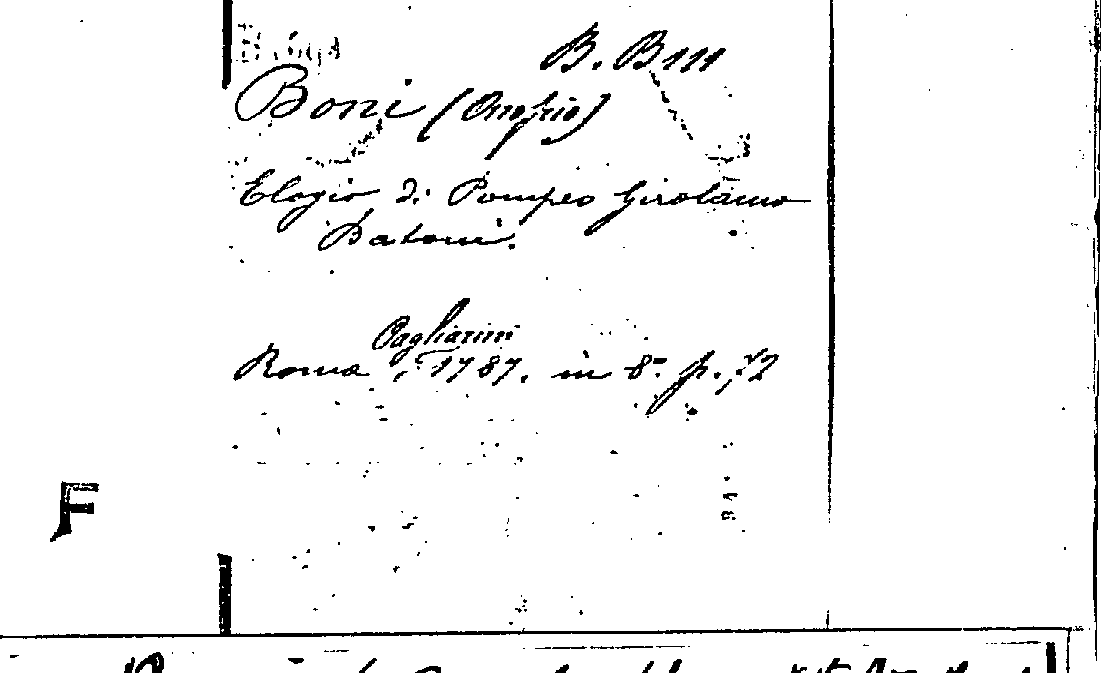 B. B III
Boni (Onofrio)
Elogio di Pompeo Girolamo
Batoni.
Pagliarini
Roma, 1787. in 8° p. 72
F